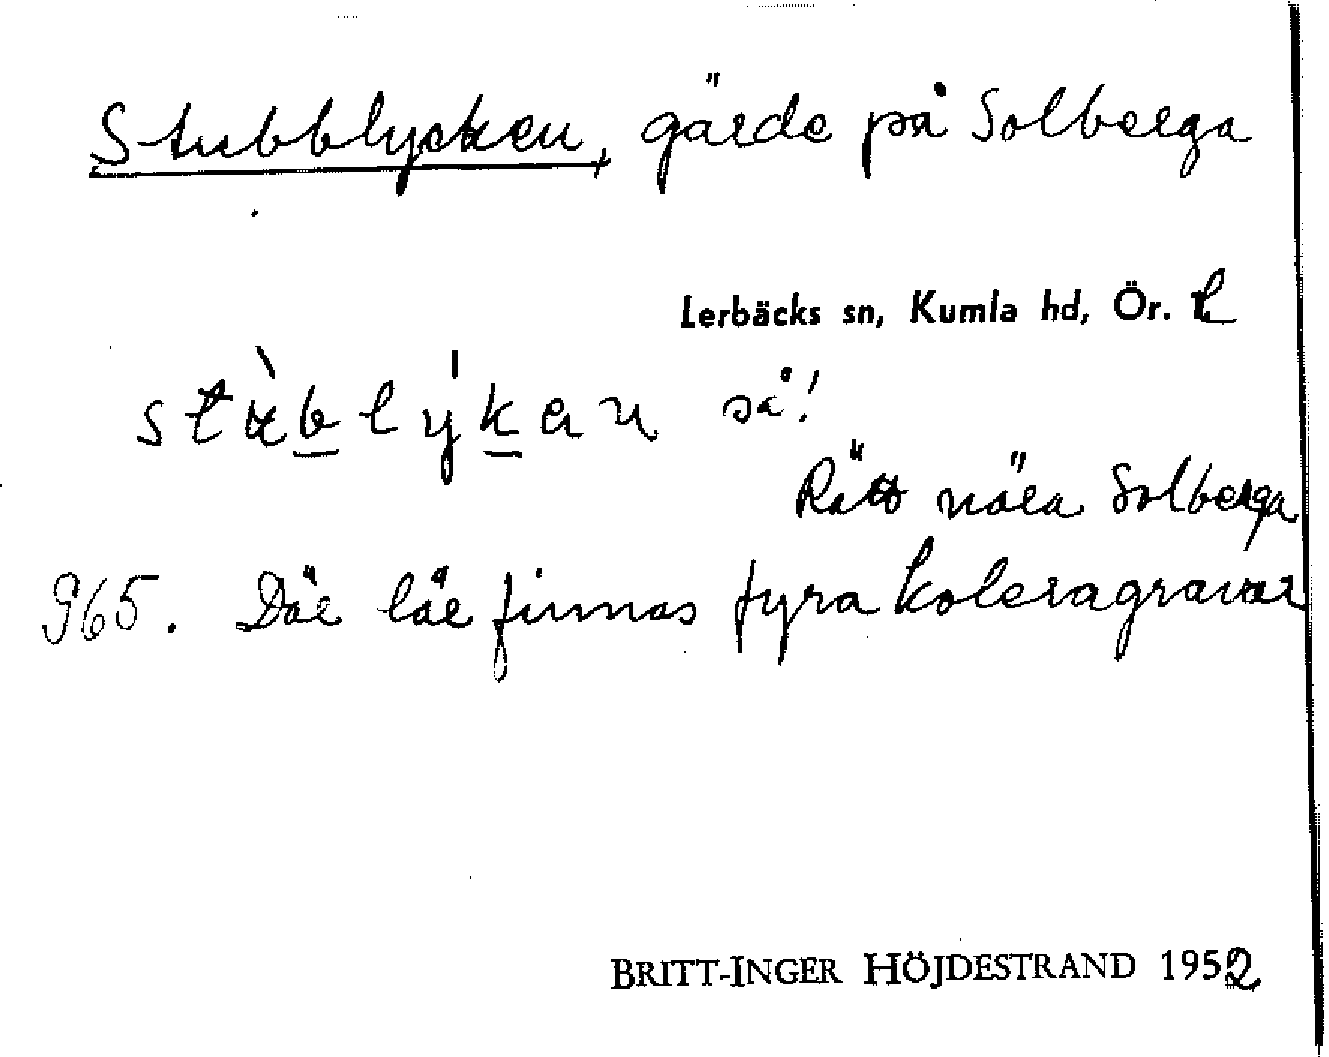 Stubblycken, gärde på Solberga
Lerbäcks sn, Kumla hd, Ör. L
stùblýkan så!
Rätt nära Solberga
965. Där lär finnas fyra koleragravar
BRITT-INGER HÖJDESTRAND 1952